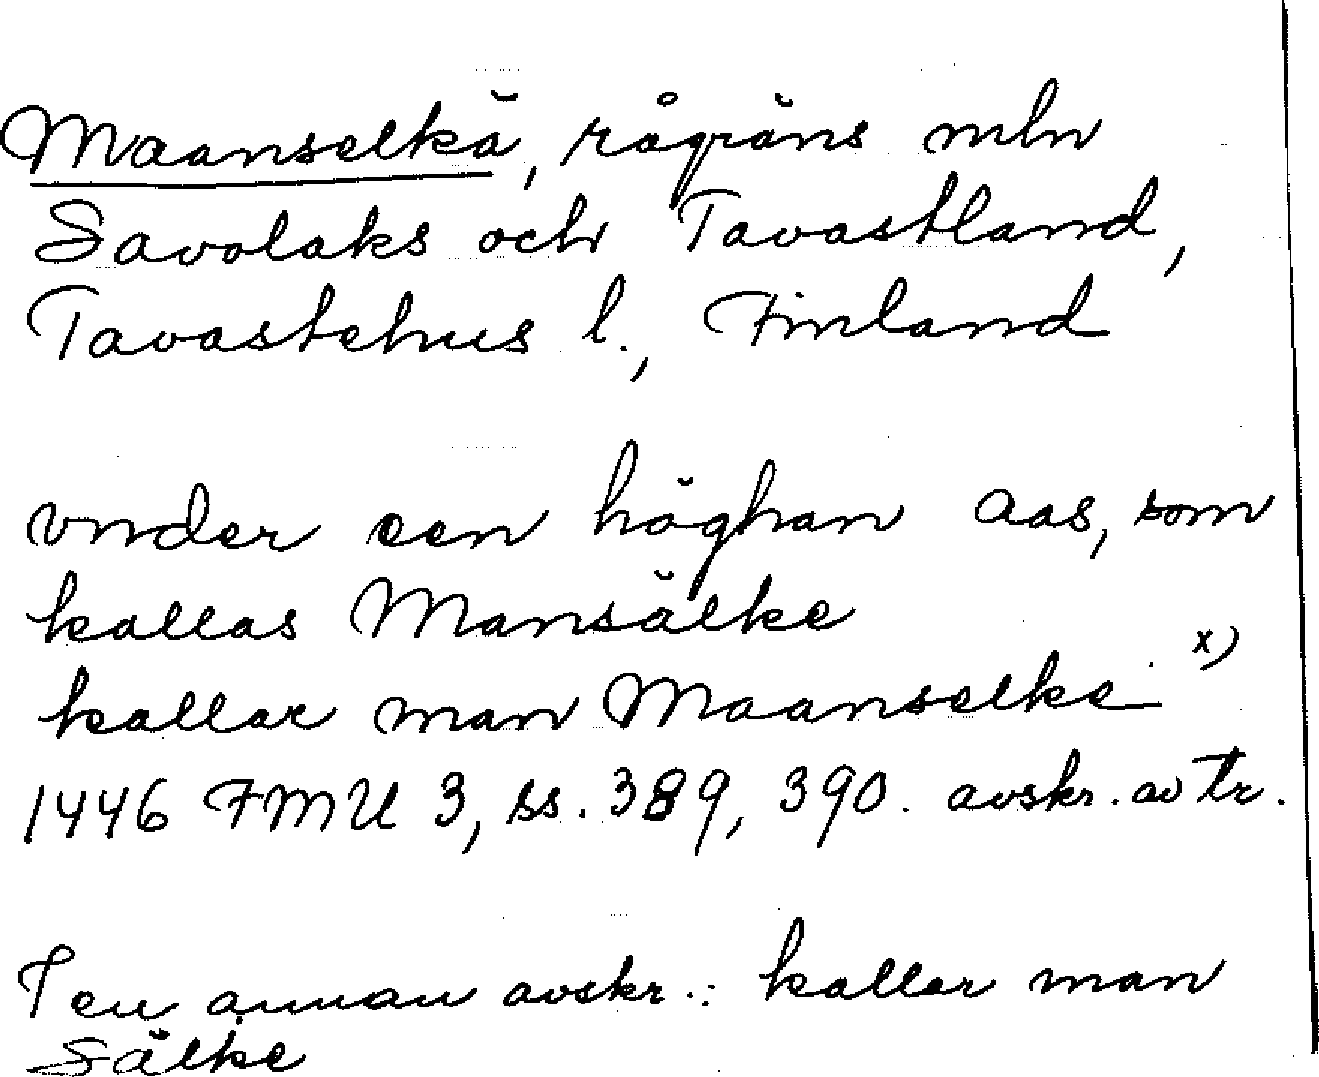 Maanselkä, rågräns mln
Savolaks och Tavastland,
Tavastehus l., Finland
vnder een höghan aas, som
kallas Mansälke
kallar man Maanselke x)
1446 FMU 3, ss. 389, 390. avskr. av tr.
I en annan avskr.: kallar man
Sälke